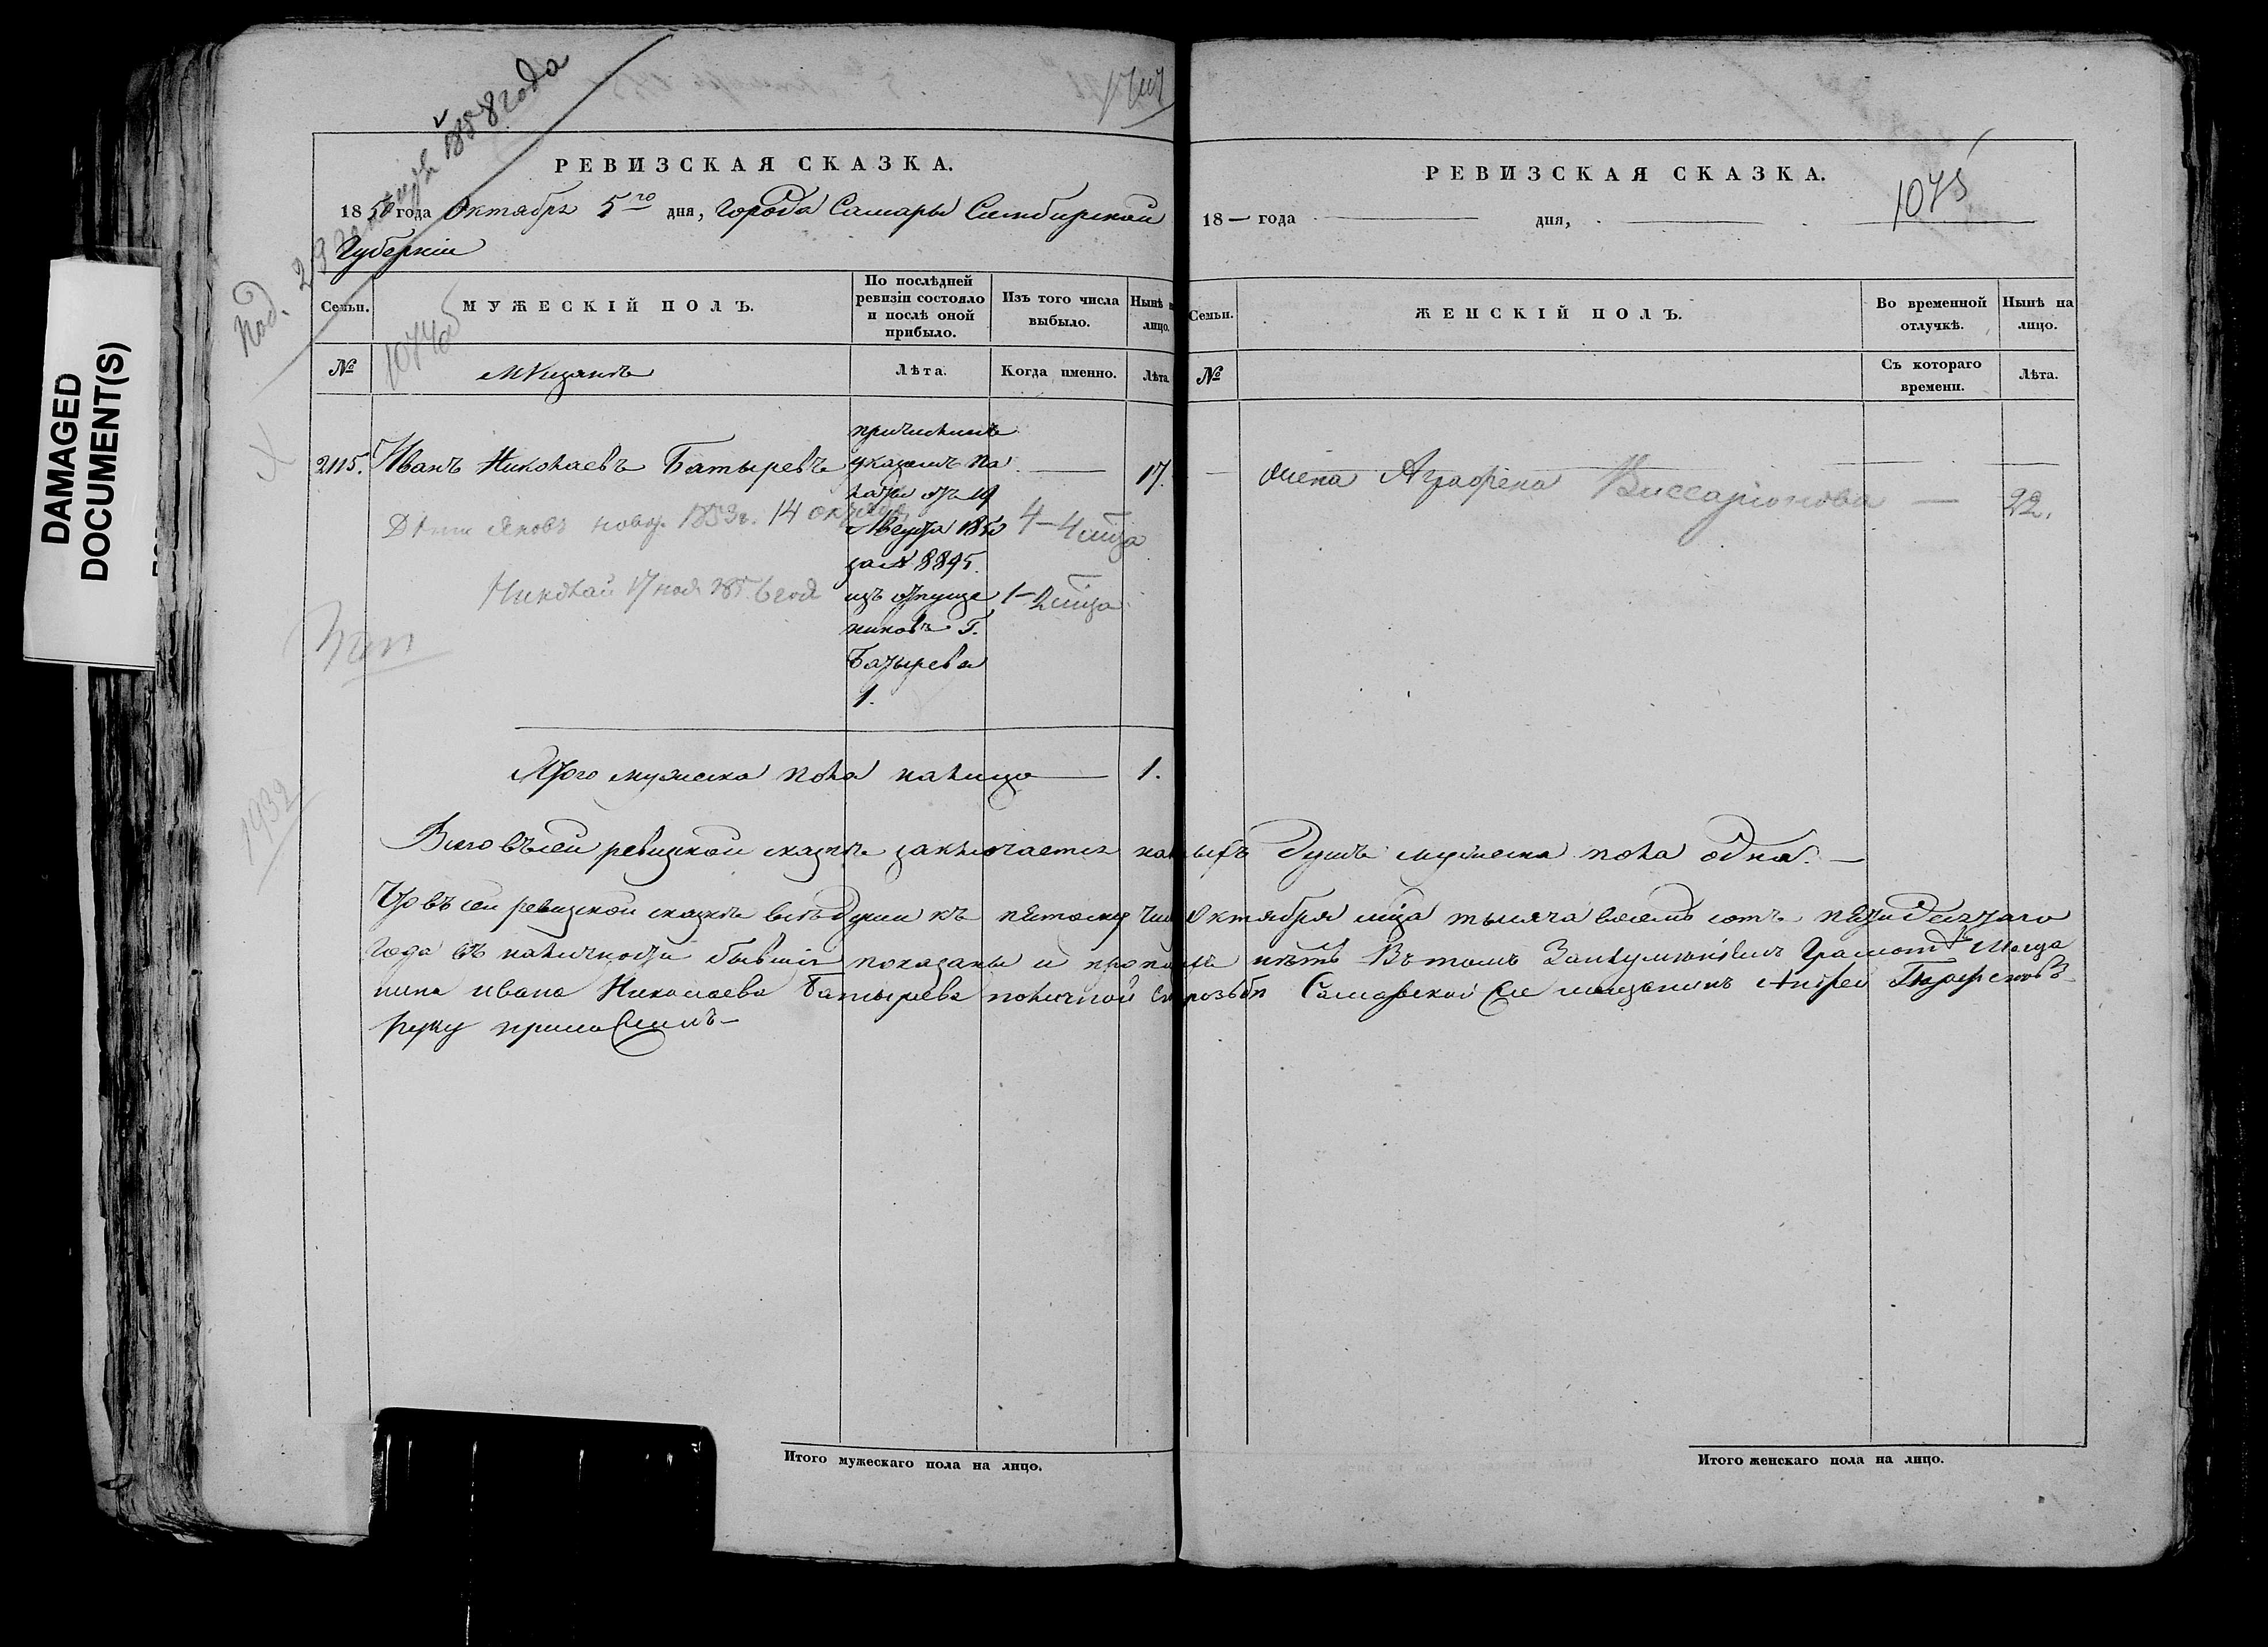 DAMAGED
DOCUMENT(S)
Под. 23 генваря 1858 года
РЕВИЗСКАЯ СКАЗКА.
1850 года Октября 5го дня, города Самары Симбирской
Губерніи
Семьи.
МУЖЕСКІЙ ПОЛЪ.
По послѣдней
ревизіи состояло
и послѣ оной
прибыло.
Изъ того числа
выбыло.
Нынѣ н
лицо.
№
1074об
Мѣщанъ
Лѣта.
Когда именно.
Лѣта.
2115. Иванъ Николаевъ Батыревъ
причисленъ
указомъ Па
латы отъ 19
Августа 1850
за № 8895.
изъ отпуще
никовъ Г.
Батырева
1.
17.
Дѣти Яковъ новор. 1853 г. 14 октября
4 — 4 мѣца
Николай 17 ноя 1856 год
1 — 2 мѣца
1932
Итого мужеска пола налицо — 1.
Итого мужескаго пола на лицо.
РЕВИЗСКАЯ СКАЗКА.
1075
18— года дня,
Семьи.
ЖЕНСКІЙ ПОЛЪ.
Во временной
отлучкѣ.
Нынѣ на
лицо.
№
Съ котораго
времени.
Лѣта.
жена Аграфена Виссаріонова — 22.
Всего въ сей ревизкой сказкѣ заключается наличныхъ душъ мужеска пола одна. —
Что въ сей ревизкой сказкѣ всѣ души къ пятому чис. Октября мѣца тысяча восемь сотъ пятидесятаго
года въ наличности бывшія показаны и прописныхъ нѣтъ Въ томъ За неумѣніемъ Грамотѣ Меща
нина Ивана Николаева Батырева по личной Его прозьбѣ Самарской мещанинъ Андрей
руку приложилъ —
Итого женскаго пола на лицо.